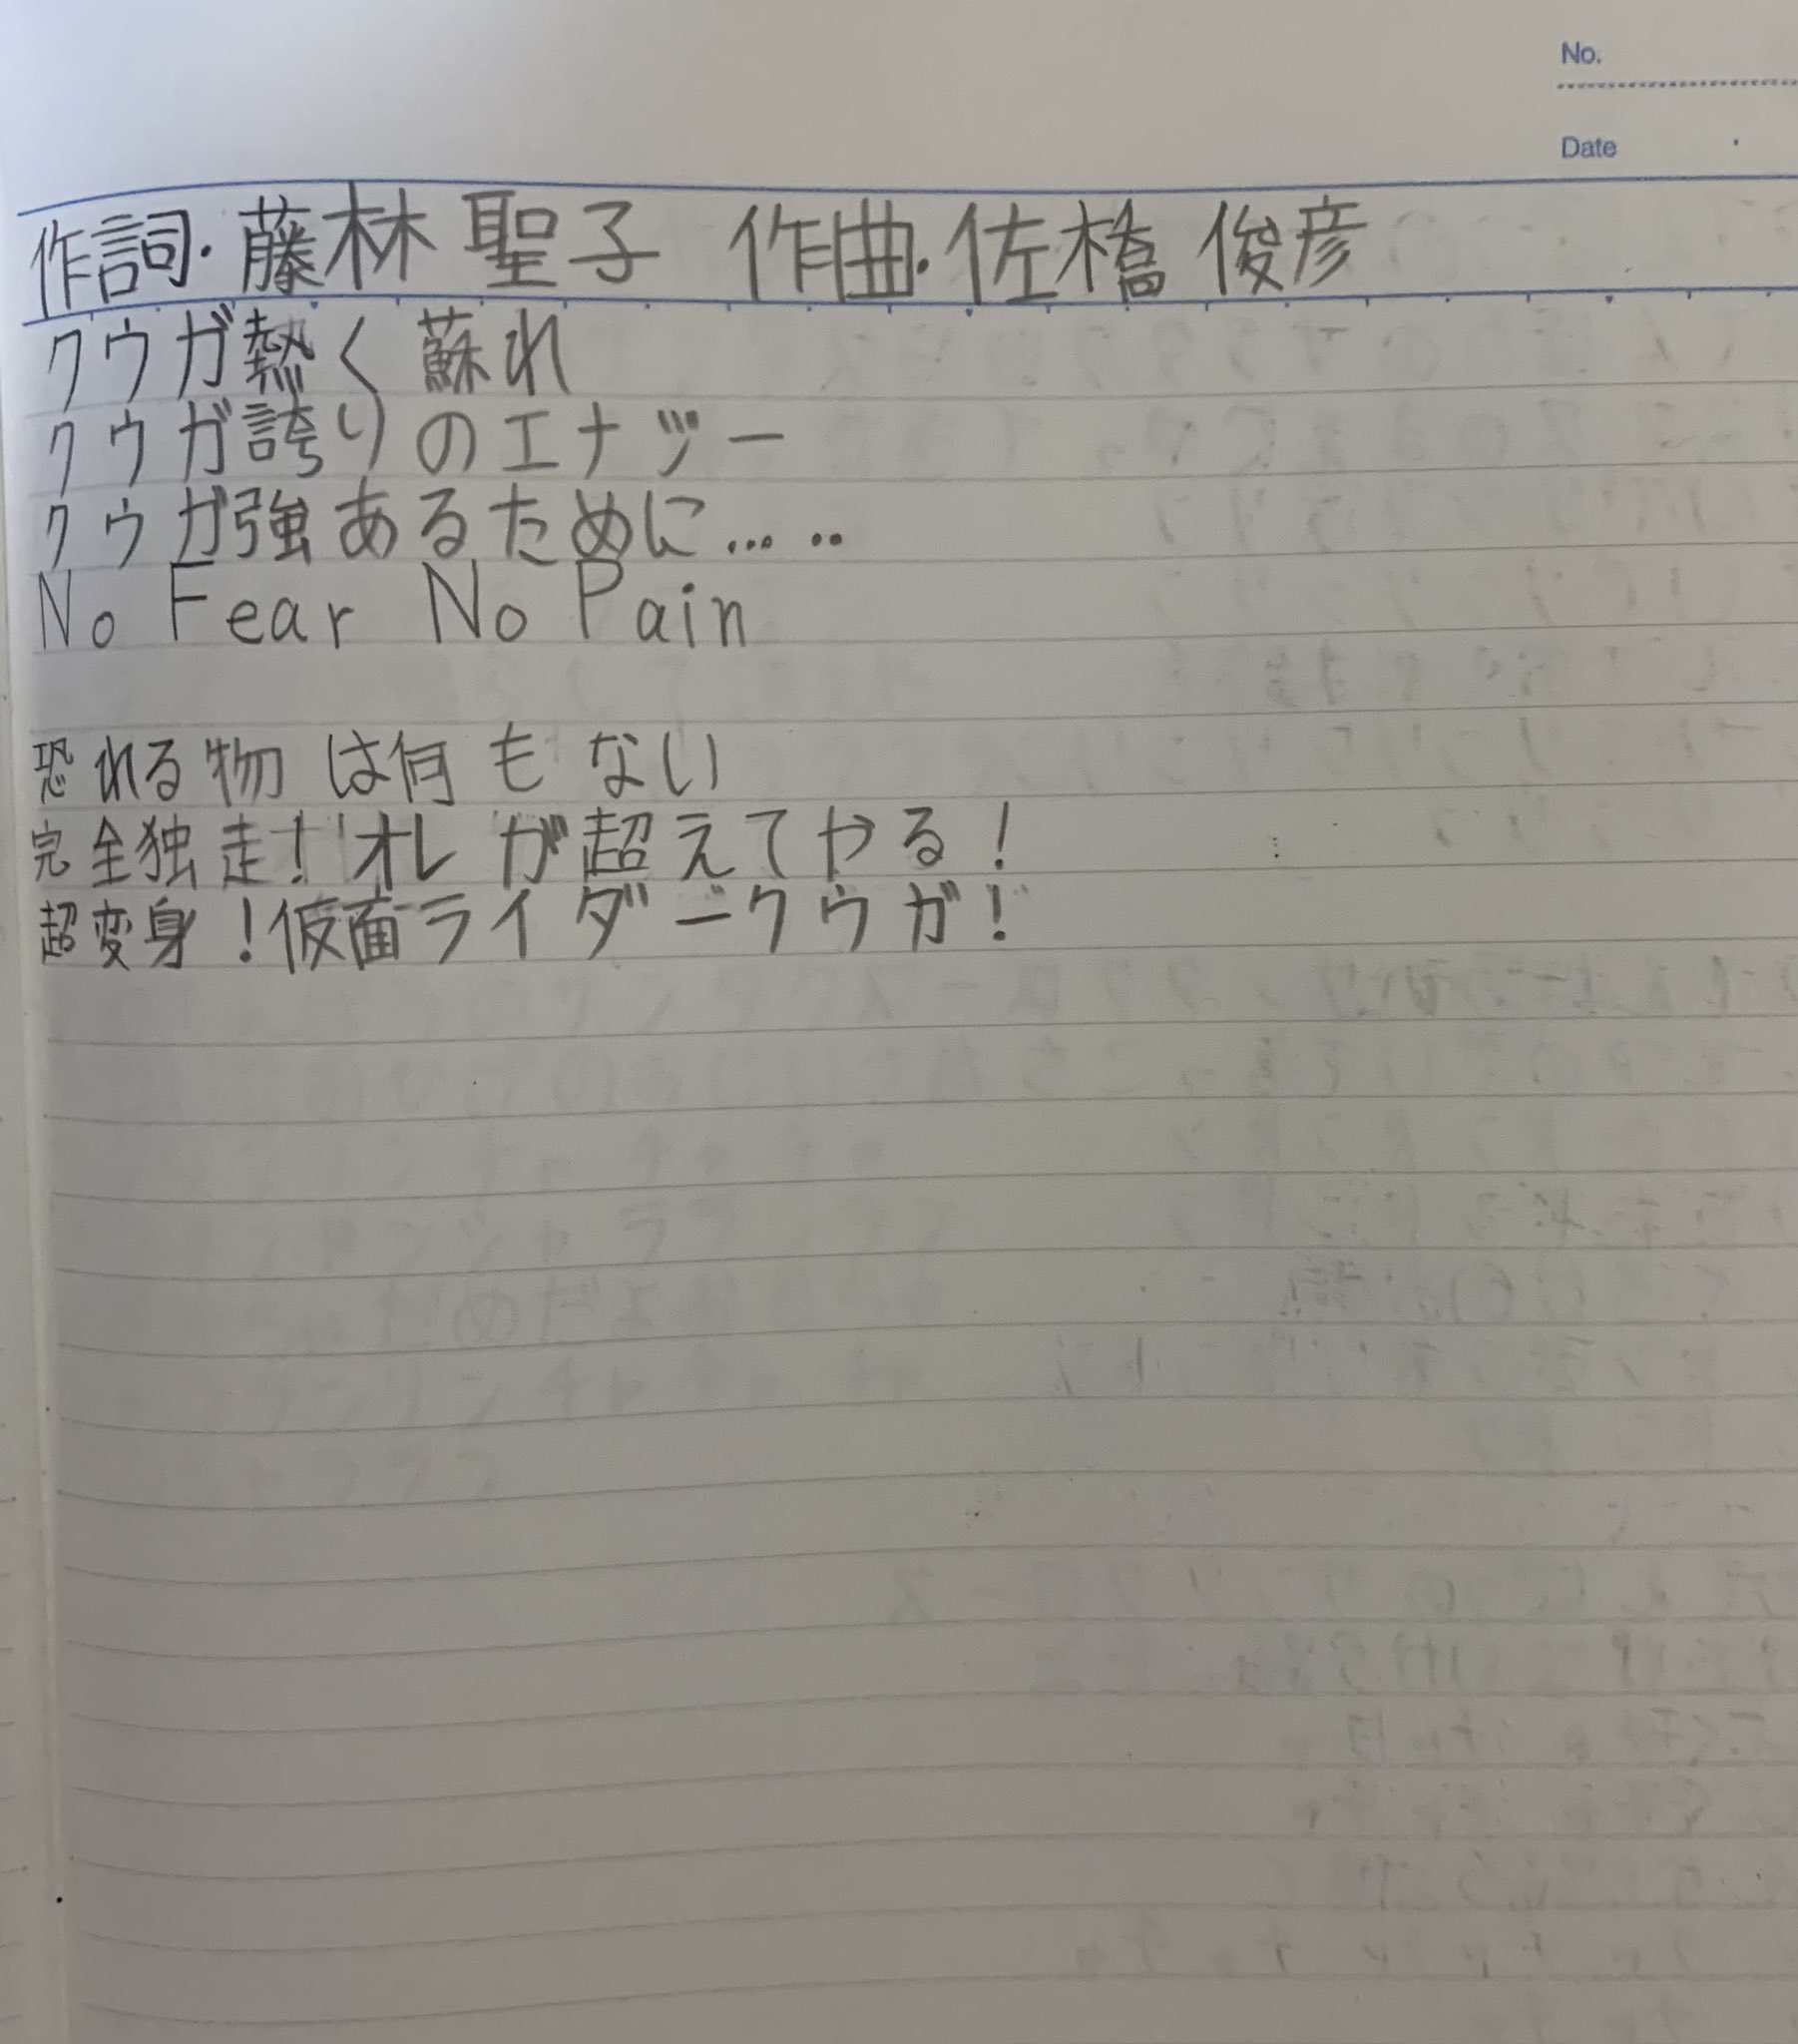 No.
Date
作詞・藤林聖子 作曲・佐橋俊彦
クウガ熱く蘇れ
クウガ誇りのエナヅー
クウガ強あるために… ‥
No Fear No Pain
恐れる物は何もない
完全独走！オレが超えてやる！
超変身！仮面ライダークウガ！